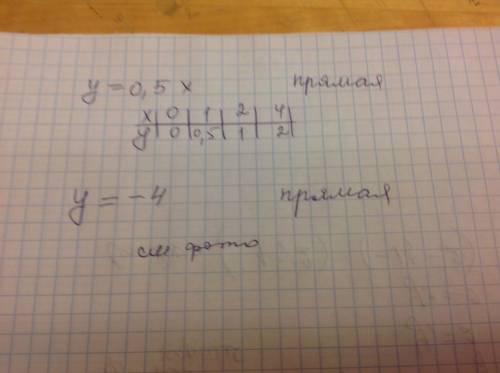 y = 0,5 x прямая
x 0 1 2 4
y 0 0,5 1 2
y = -4 прямая
см фото